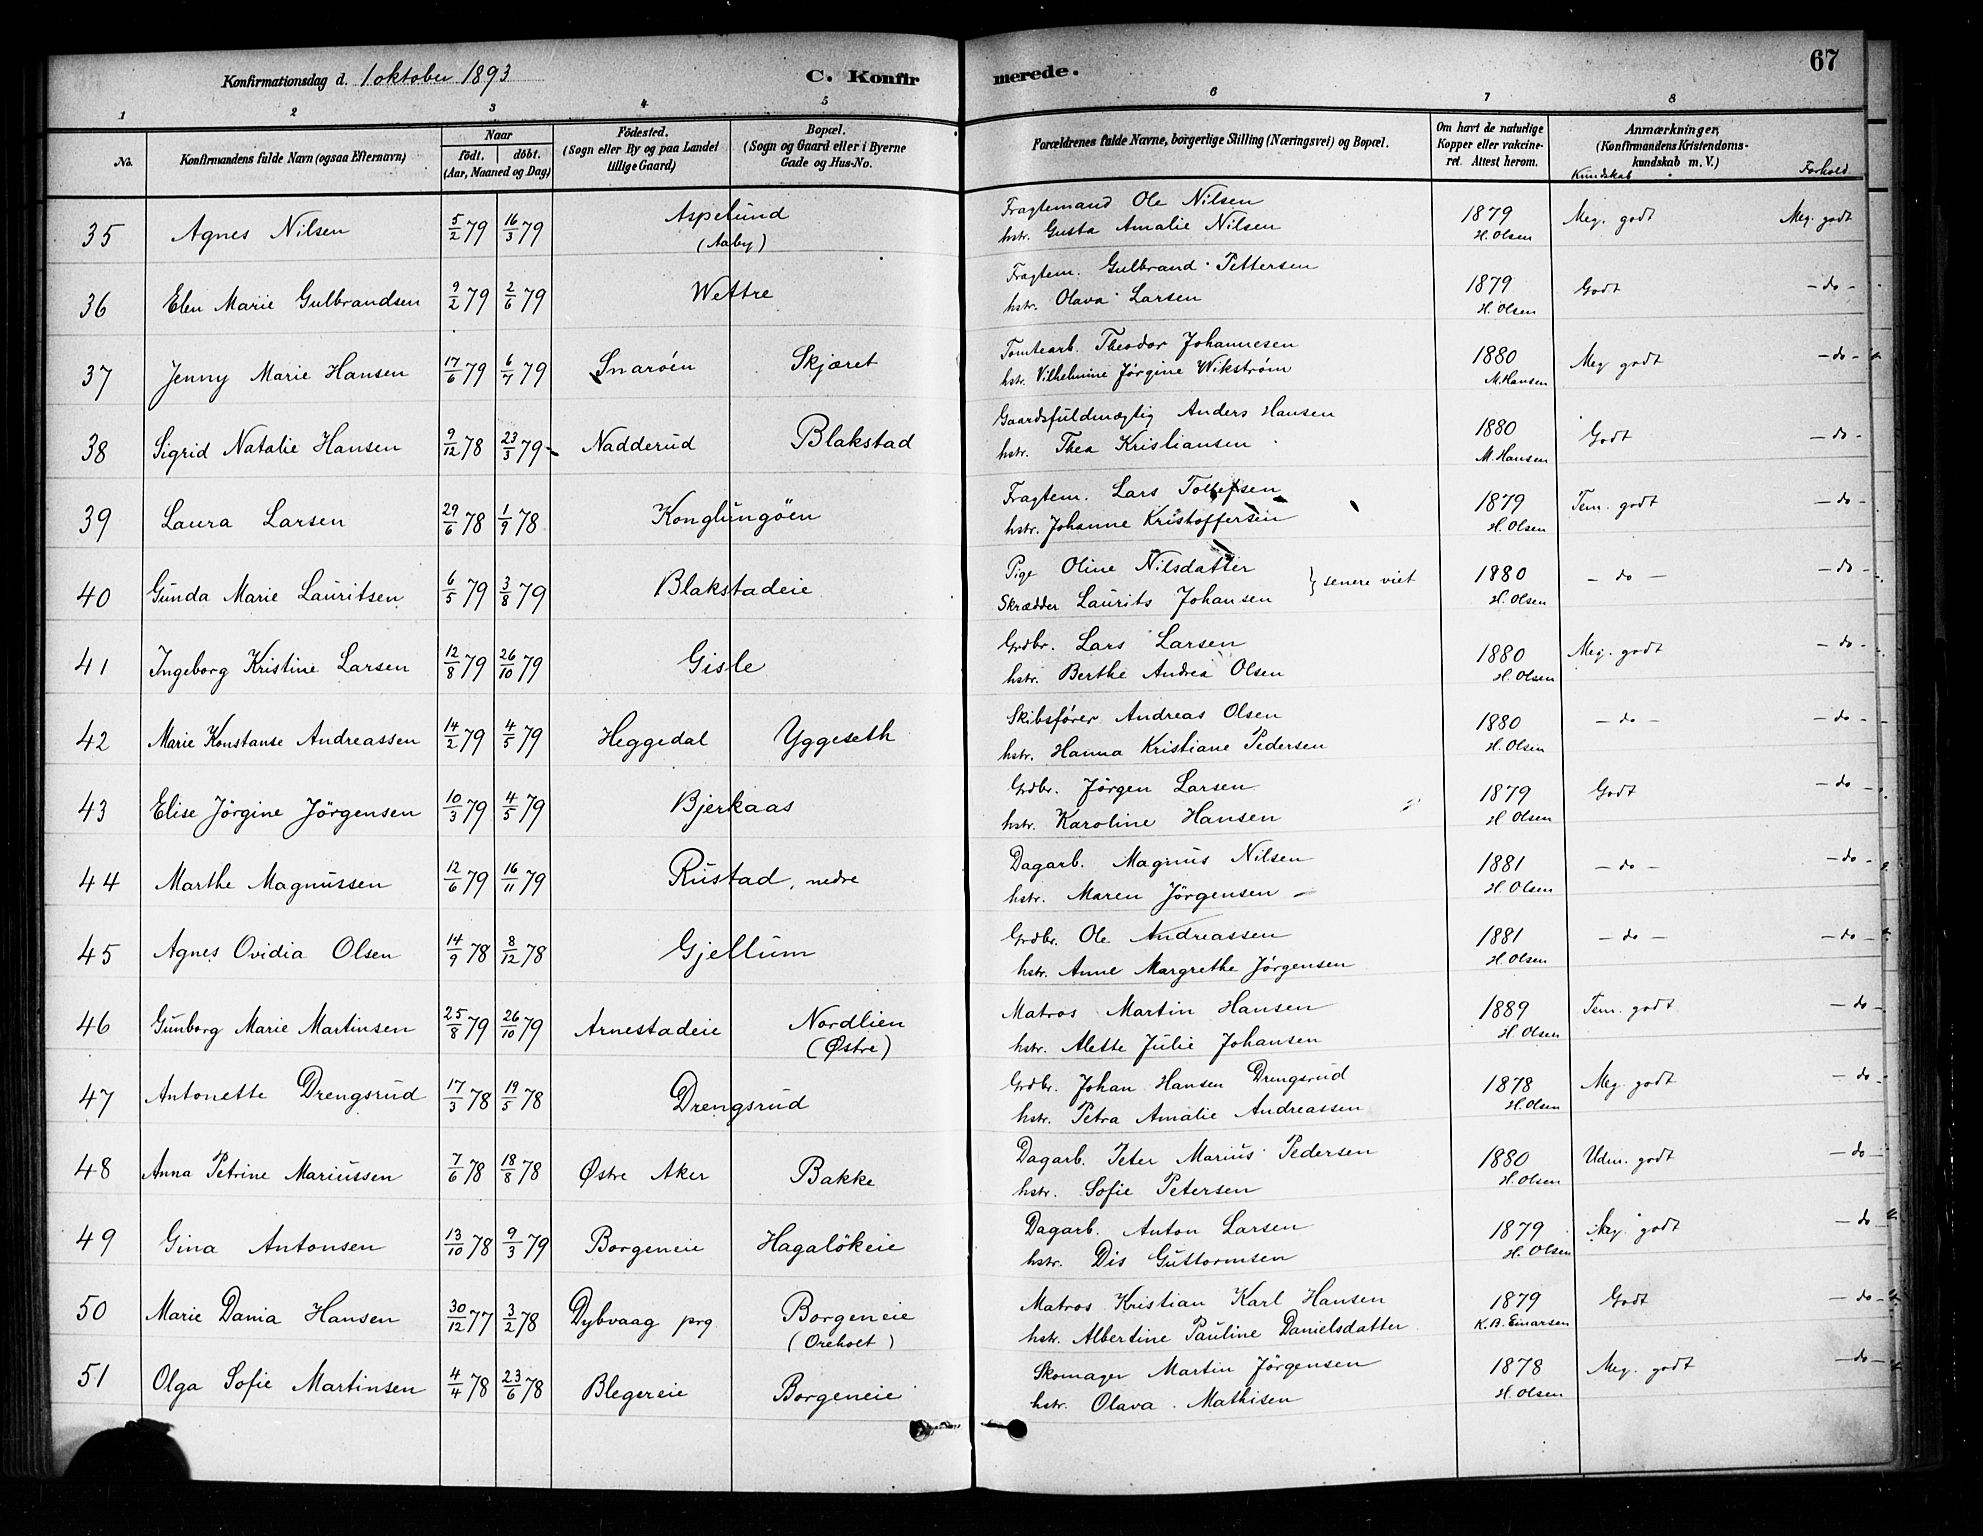 67
Konfirmationsdag d. 1 oktober 1893 C. Konfirmerede.
1 2 3 4 5 6 7 8
No. Konfirmandens fulde Navn (ogsaa Efternavn) Naar født. døbt. (Aar, Maaned og Dag) Födested. (Sogn eller By og paa Landet tillige Gaard) Bopæl. (Sogn og Gaard eller i Byerne Gade og Hus-No. Forældrenes fulde Navne, borgerlige Stilling (Næringsvei) og Bopæl. Om havt de naturlige Kopper eller vakcineret. Attest herom. Anmærkninger, (Konfirmandens Kristendomskundskab m. V.) Kundskab Forhold
35 Agnes Nilsen 5/2 79 16/3 79 Aspelund (Aaby) Fragtemand Ole Nilsen 1879 Meg. godt Meg. godt
hstr. Gusta Amalie Nilsen H. Olsen
36 Elen Marie Gulbrandsen 9/2 79 2/6 79 Wettre Fragtem. Gulbrand Pettersen 1879 Godt - do -
hstr. Olava Larsen H. Olsen
37 Jenny Marie Hansen 17/6 79 6/7 79 Snaröen Skjæret Tomtearb. Theodor Johannesen 1880 Meg godt - do -
hstr. Vilhelmine Jørgine Wikstrøm M. Hansen
38 Sigrid Natalie Hansen 9/12 78 23/3 79 Nadderud Blakstad Gaardsfuldmægtig Anders Hansen 1880 Godt - do -
hstr. Thea Kristiansen M. Hansen
39 Laura Larsen 29/6 78 1/9 78 Konglungöen Fragtem. Lars Tollefsen 1879 Tem. godt - do -
hstr. Johanne Kristoffersen H. Olsen
40 Gunda Marie Lauritsen 6/5 79 3/8 79 Blakstadeie Pige Oline Nilsdatter } senere viet 1880 - do - - do -
Skrædder Laurits Johansen H. Olsen
41 Ingeborg Kristine Larsen 12/8 79 26/10 79 Gisle Grdbr. Lars Larsen 1880 Meg. godt - do -
hstr. Berthe Andrea Olsen H. Olsen
42 Marie Konstanse Andreassen 14/2 79 4/5 79 Heggedal Yggeseth Skibsfører Andreas Olsen 1880 - do - - do -
hstr. Hanna Kristiane Pedersen H. Olsen
43 Elise Jörgine Jörgensen 10/3 79 4/5 79 Bjerkaas Grdbr. Jörgen Larsen 1879 Godt - do -
hstr. Karoline Hansen H Olsen
44 Marthe Magnussen 12/6 79 16/11 79 Rustad, nedre Dagarb. Magnus Nilsen 1881 - do - - do -
hstr. Maren Jörgensen H. Olsen
45 Agnes Ovidia Olsen 14/9 78 8/12 78 Gjellum Grdbr. Ole Andreassen 1881 - do - - do -
hstr. Anne Margrethe Jörgensen H. Olsen
46 Gunborg Marie Martinsen 25/8 79 26/10 79 Arnestadeie Nordlien (Østre) Matros Martin Hansen 1889 Tem. godt - do -
hstr. Alette Julie Johansen H. Olsen
47 Antonette Drengsrud 17/3 78 19/5 78 Drengsrud Grdbr. Johan Hansen Drengsrud 1878 Meg. godt - do -
hstr. Petra Amalie Andreassen H. Olsen
48 Anna Petrine Mariussen 7/6 78 18/8 78 Østre Aker Bakke Dagarb. Peter Marius Pedersen 1880 Udm. godt - do -
hstr. Sofie Petersen H. Olsen
49 Gina Antonsen 13/10 78 9/3 79 Borgeneie Hagalökeie Dagarb. Anton Larsen 1879 Meg. godt - do -
hstr. Dis Guttormsen H. Olsen
50 Marie Dania Hansen 30/12 77 3/2 78 Dybvaag prg. Borgeneie (Oreholt) Matros Kristian Karl Hansen 1879 Godt - do -
hstr. Albertine Pauline Danielsdatter K. B. Einarsen
51 Olga Sofie Martinsen 4/4 78 23/6 78 Blegereie Borgeneie Skomager Martin Jörgensen 1878 Meg. godt - do -
hstr. Olava Mathisen H. Olsen